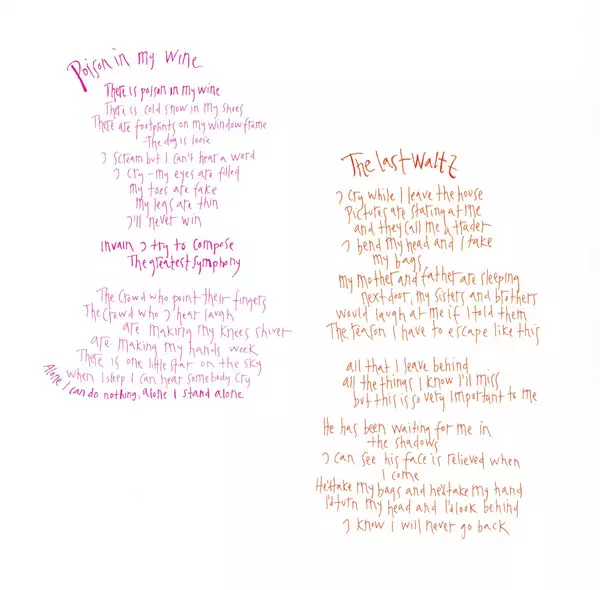 Poison in my wine
There is poison in my wine
There is cold snow in my shoes
There are footprints on my windowframe
-The dog is loose
I scream but I can't hear a word
I cry - my eyes are filled
my toes are fake
my legs are thin
I'll never win
Invain I try to compose
The greatest symphony
The Crowd who point their fingers
The Crowd who I hear laugh
are making my knees shiver
are making my hands week
There is one little star on the sky
when I sleep I can hear somebody cry
Alone I can do nothing, alone I stand alone
The last Waltz
I cry while I leave the house
Pictures are staring at me
and they call me a trader
I bend my head and I take
my bags
my mother and father are sleeping
next door, my sisters and brothers
would laugh at me if I told them
The reason I have to escape like this
all that I leave behind
all the things I know I'll miss
but this is so very important to me
He has been waiting for me in
the shadows
I can see his face is relieved when
I come
He'd take my bags and he'd take my hand
I'd turn my head and I'd look behind
I know I will never go back